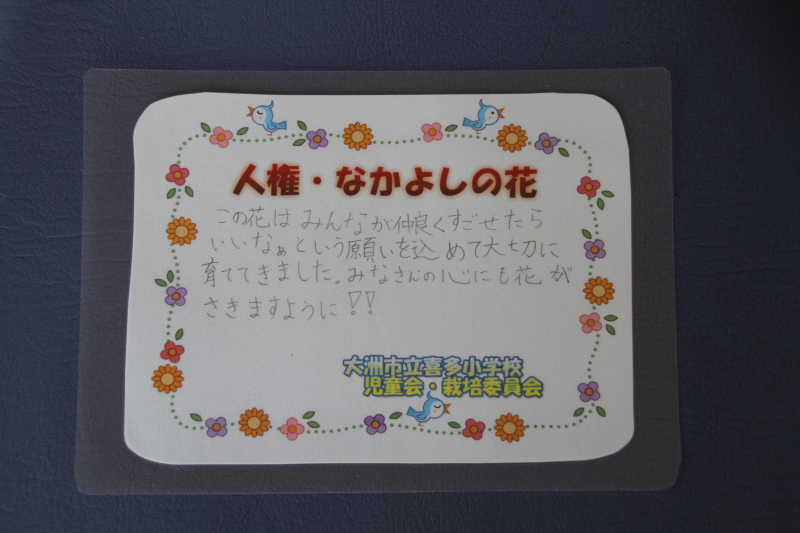 人権・なかよしの花
この花はみんなが仲良くすごせたら
いいなぁという願いを込めて大切に
育ててきました。みなさんの心にも花が
さきますように!!
大洲市立喜多小学校
児童会・栽培委員会